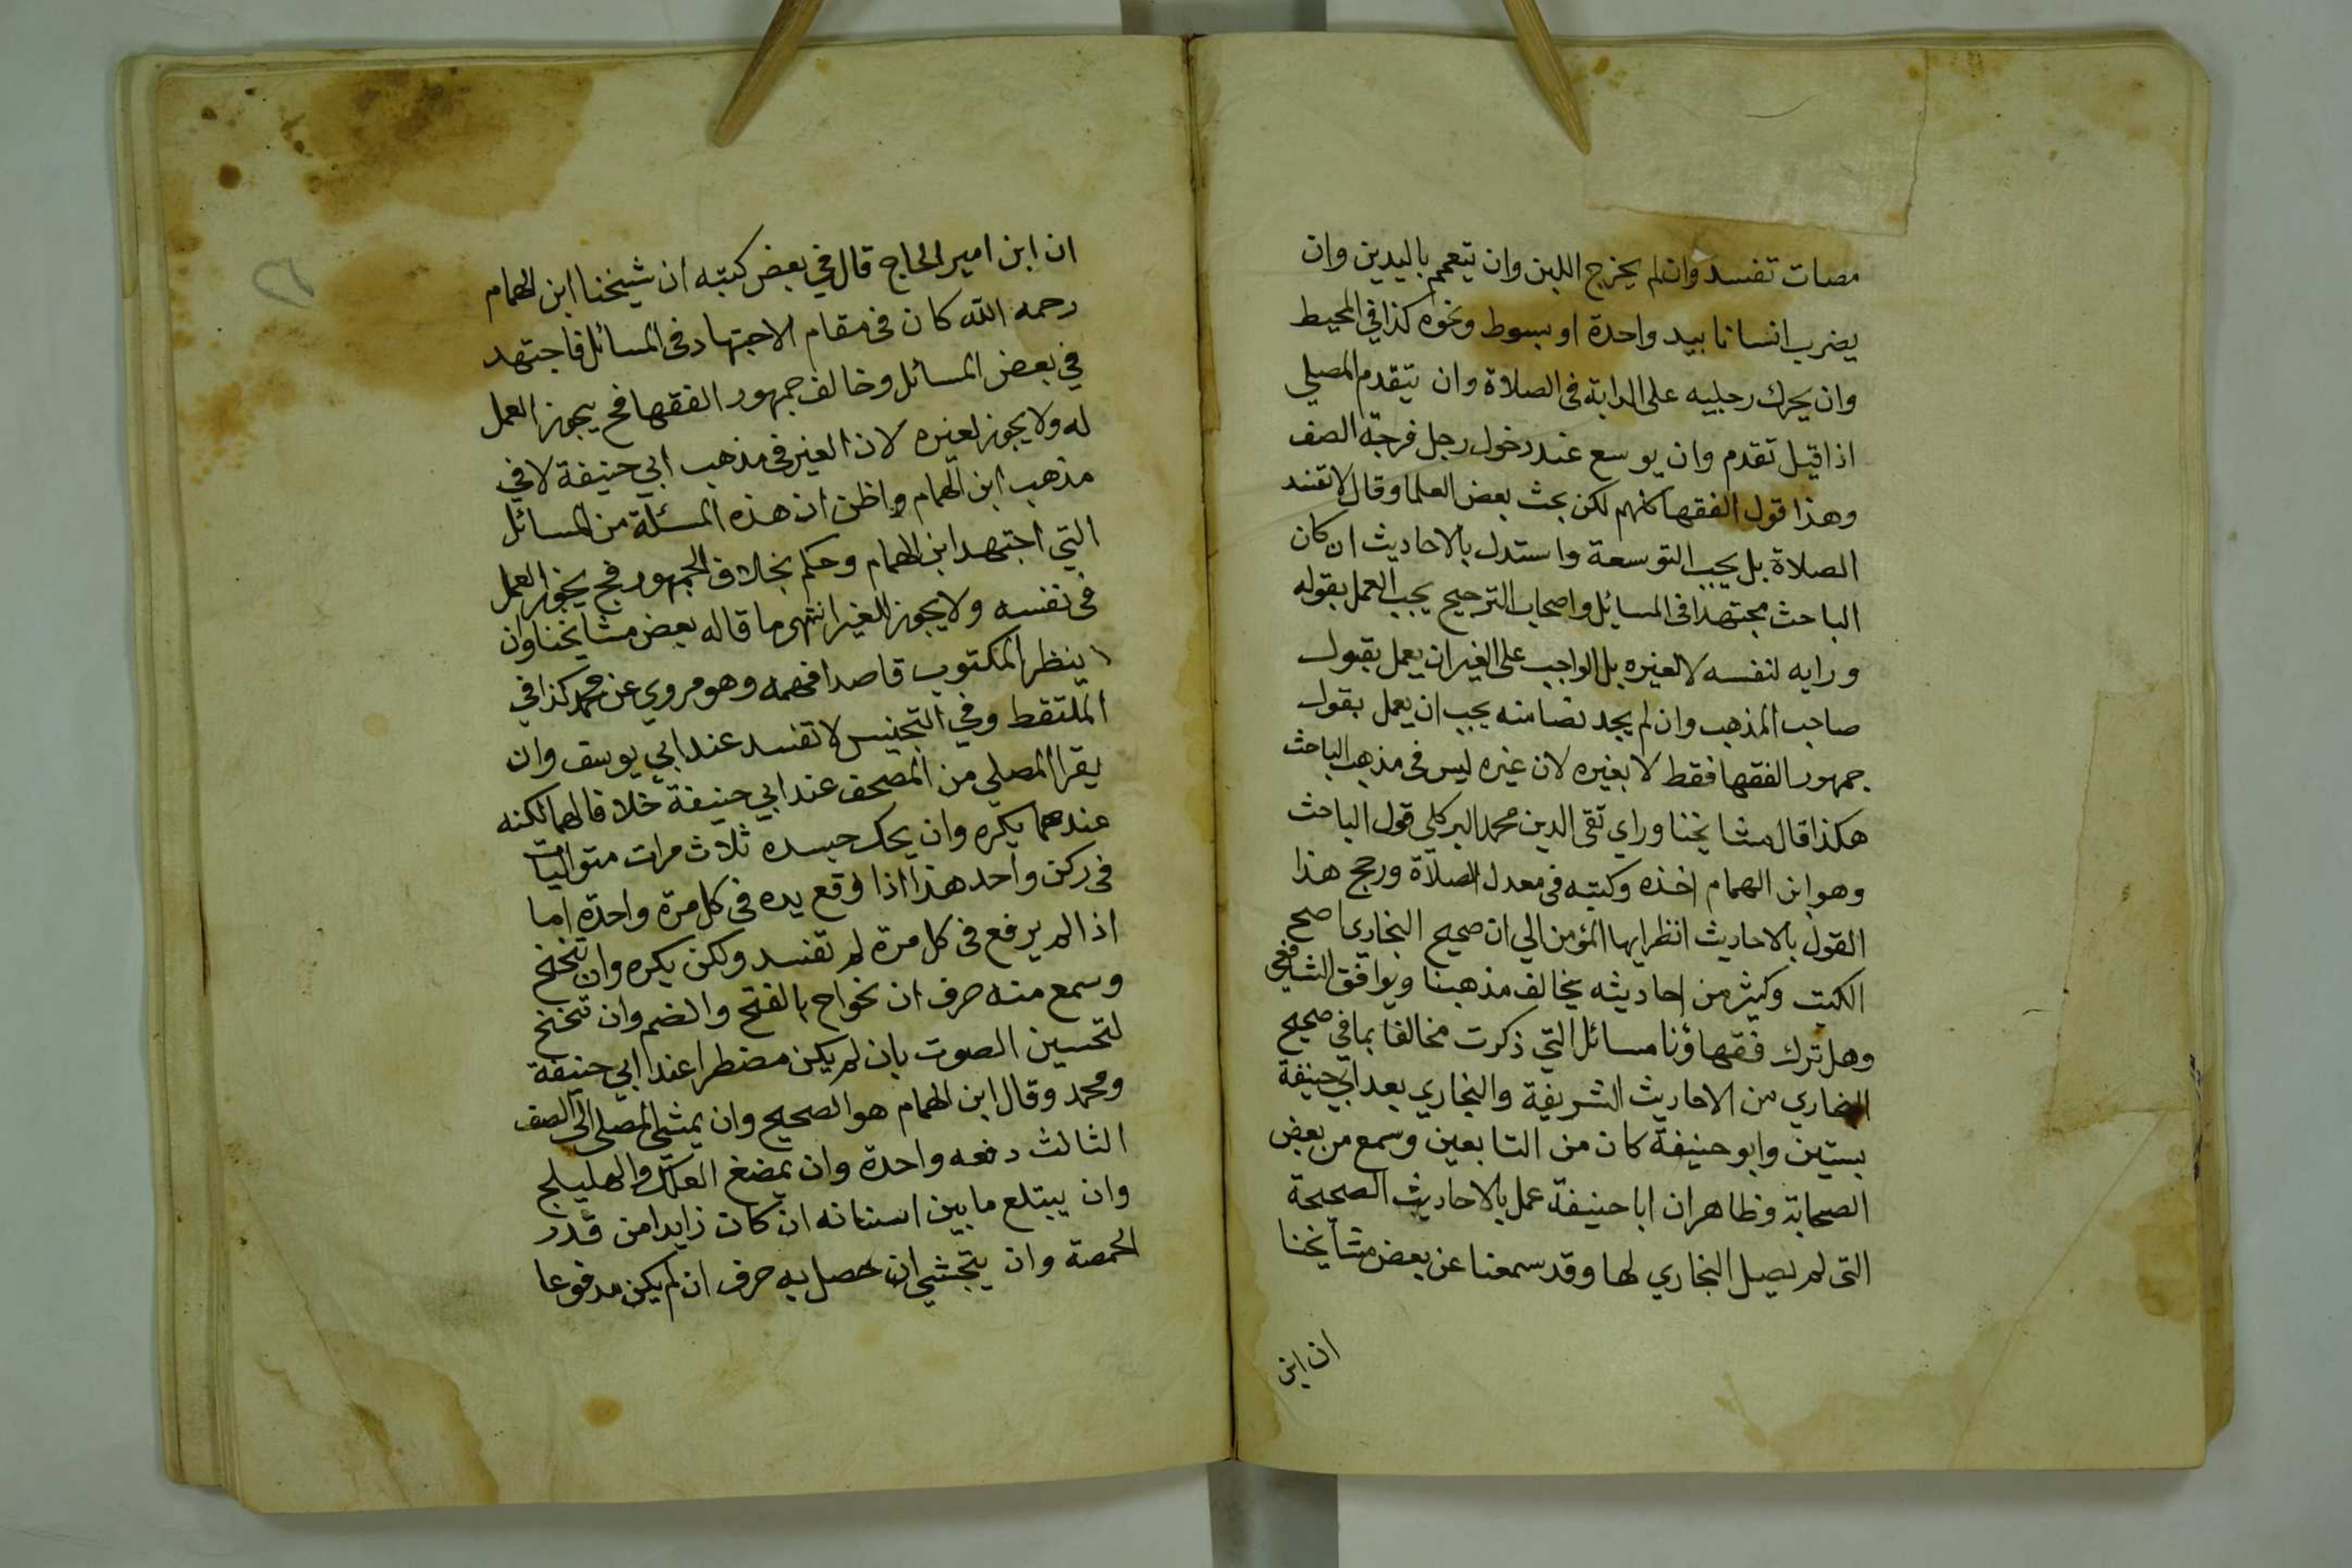 مصات تفسد وان لم يخرج اللبن وان يتعمم باليدين وان
يضرب انسانا بيد واحدة او بسوط ونحوه كذا في المحيط
وان يحرك رجليه على الدابة فى الصلاة وان يتقدم المصلي
اذا قيل تقدم وان يوسع عند دخول رجل فرجة الصف
وهذا قول الفقها كلهم لكن بحث بعض العلما وقال لا تفسد
الصلاة بل يجب التوسعة واستدل بالاحاديث ان كان
الباحث مجتهدا فى المسايل واصحاب الترجيح يجب العمل بقوله
ورايه لنفسه لا لغيره بل الواجب على الغير ان يعمل بقول
صاحب المذهب وان لم يجد نصا منه يجب ان يعمل بقول
جمهور الفقها فقط لا بغيره لان غيره ليس فى مذهب الباحث
هكذا قال مشايخنا وراي تقى الدين محمد البركلي قول الباحث
وهو ابن الهمام اخذه وكتبه فى معدل الصلاة ورجح هذا
القول بالاحاديث انظر ايها المؤمن الي ان صحيح البخاري اصح
الكتب وكثير من احاديثه يخالف مذهبنا ويوافق الشافعي
وهل ترك فقهاؤنا مسائل التي ذكرت مخالفا بما في صحيح
البخاري من الاحاديث الشريفة والبخاري بعد ابي حنيفة
بستين وابو حنيفة كان من التابعين وسمع من بعض
الصحابة وظاهر ان ابا حنيفة عمل بالاحاديث الصحيحة
التى لم يصل البخاري لها وقد سمعنا عن بعض مشايخنا
ان ابن
٢٦
ان ابن امير الحاج قال في بعض كتبه ان شيخنا ابن الهمام
رحمه الله كان فى مقام الاجتهاد فى المسائل فاجتهد
في بعض المسائل وخالف جمهور الفقها فح يجوز العمل
له ولا يجوز لغيره لان الغير فى مذهب ابي حنيفة لا في
مذهب ابن الهمام واظن ان هذه المسئلة من المسائل
التي اجتهد ابن الهمام وحكم بخلاف الجمهور فح يجوز العمل
فى نفسه ولا يجوز للغير انتهى ما قاله بعض مشايخنا وان
ينظر المكتوب قاصدا فهمه وهو مروي عن محمد كذا في
الملتقط وفي التجنيس لا تفسد عند ابي يوسف وان
يقرا المصلي من المصحف عند ابي حنيفة خلافا لهما لكنه
عندهما يكره وان يحك جسده ثلاث مرات متواليات
فى ركن واحد هذا اذا وقع يده فى كل مرة واحدة اما
اذا لم يرفع فى كل مرة لم تفسد ولكن يكره وان تنحنح
وسمع منه حرف ان نحو اح بالفتح والضم وان تنحنح
لتحسين الصوت بان لم يكن مضطرا عند ابي حنيفة
ومحمد وقال ابن الهمام هو الصحيح وان يمشي المصلى الى الصف
الثالث دفعه واحدة وان يمضغ العلك والهليلج
وان يبتلع ما بين اسنانه ان كان زايدا من قدر
الحمصة وان يتجشي ان حصل به حرف ان لم يكن مدفوعا